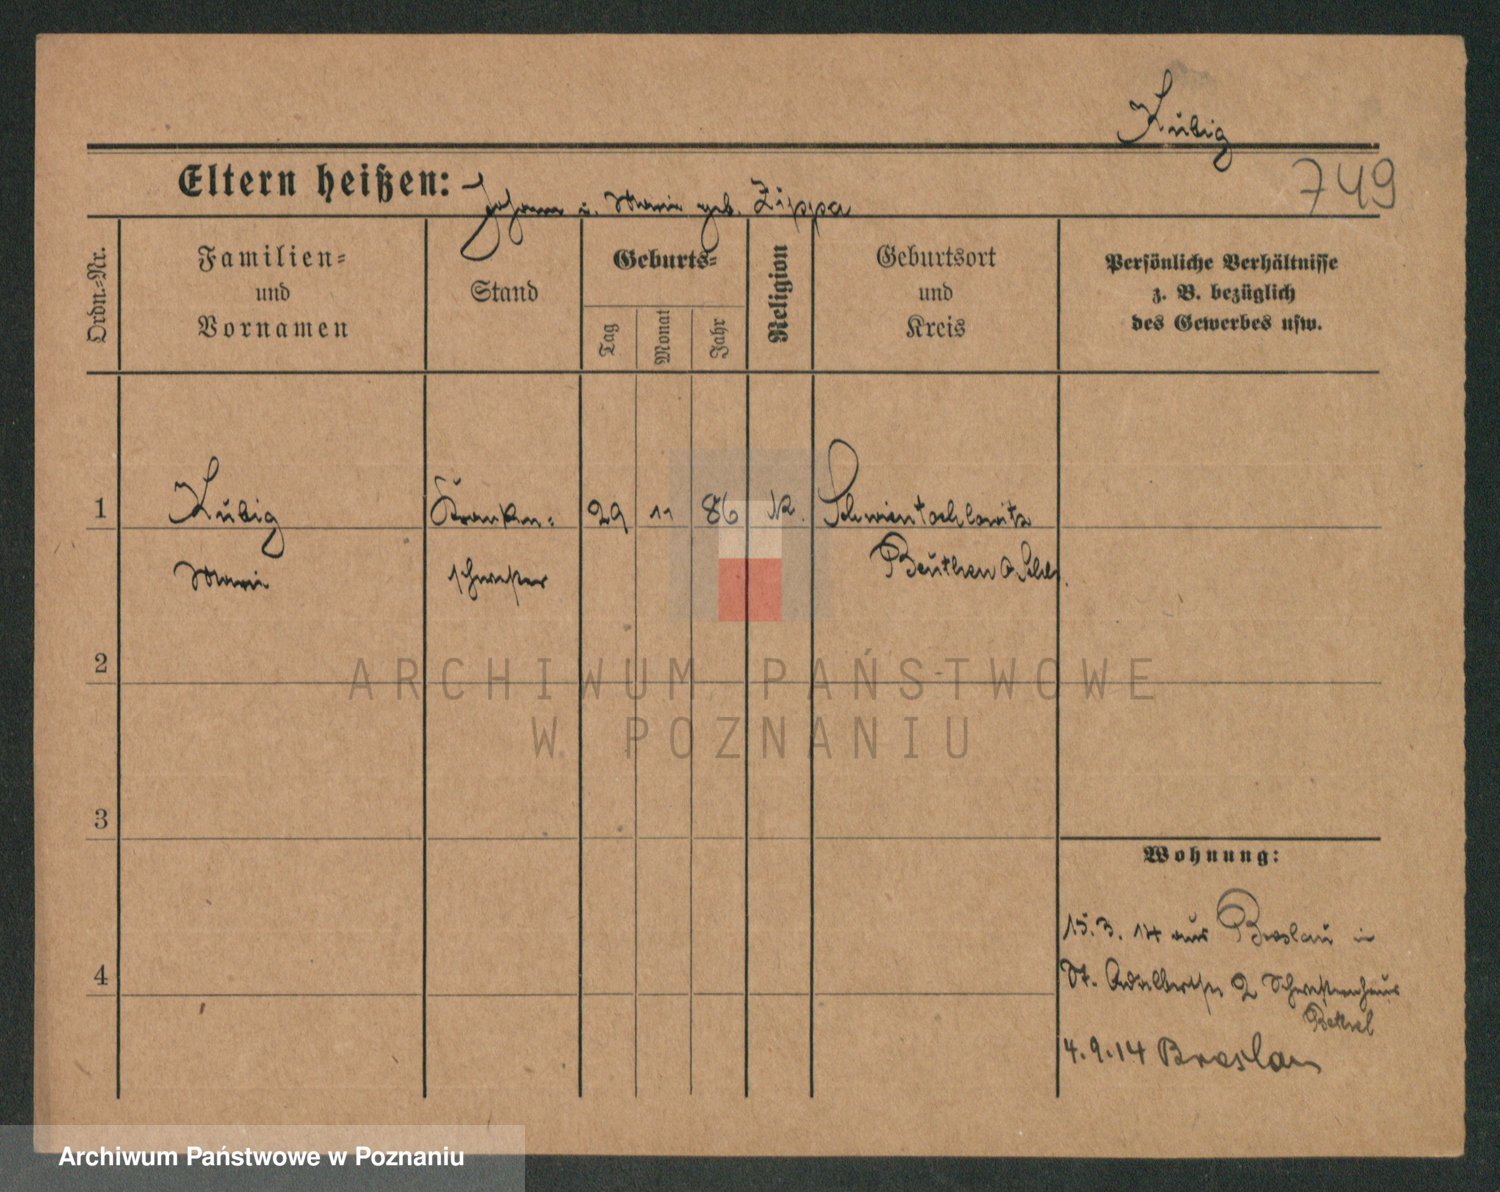 Kubig
749
Eltern heißen: Johann u. Marie geb. Zippa
Ordn.-Nr.
Familien-
und
Vornamen
Stand
Geburts-
Tag
Monat
Jahr
Religion
Geburtsort
und
Kreis
Persönliche Verhältnisse
z. B. bezüglich
des Gewerbes usw.
1
Kubig
Marie
Kranken-
schwester
29
11
86
k.
Schwientochlowitz
Beuthen O Schl.
2
3
4
Wohnung:
15.3.14 aus Breslau in
St. Adalbertstr 2 Schwesternhaus
Bethel
4.9.14 Breslau
ARCHIWUM PAŃSTWOWE
W POZNANIU
Archiwum Państwowe w Poznaniu